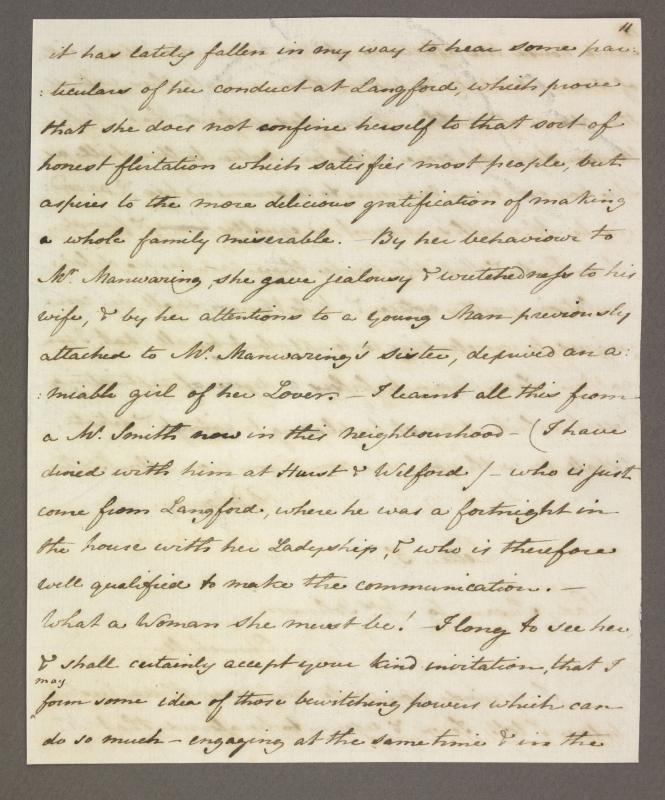 11
it has lately fallen in my way to hear some par:
:ticulars of her conduct at Langford, which prove
that she does not confine herself to that sort of
honest flirtation which satisfies most people, but
aspires to the more delicious gratification of making
a whole family miserable. — By her behaviour to
Mr. Manwaring, she gave jealousy & wretchedness to his
wife, & by her attentions to a young Man previously
attached to Mr. Manwaring's sister, deprived an a:
:miable girl of her Lover. — I learnt all this from
a Mr. Smith now in this neighbourhood — (I have
dined with him at Hurst & Wilford) — who is just
come from Langford, where he was a fortnight in
the house with her Ladyship, & who is therefore
well qualified to make the communication. —
What a Woman she must be! — I long to see her,
& shall certainly accept your kind invitation, that I
may
form some idea of those bewitching powers which can
do so much — engaging at the same time & in the